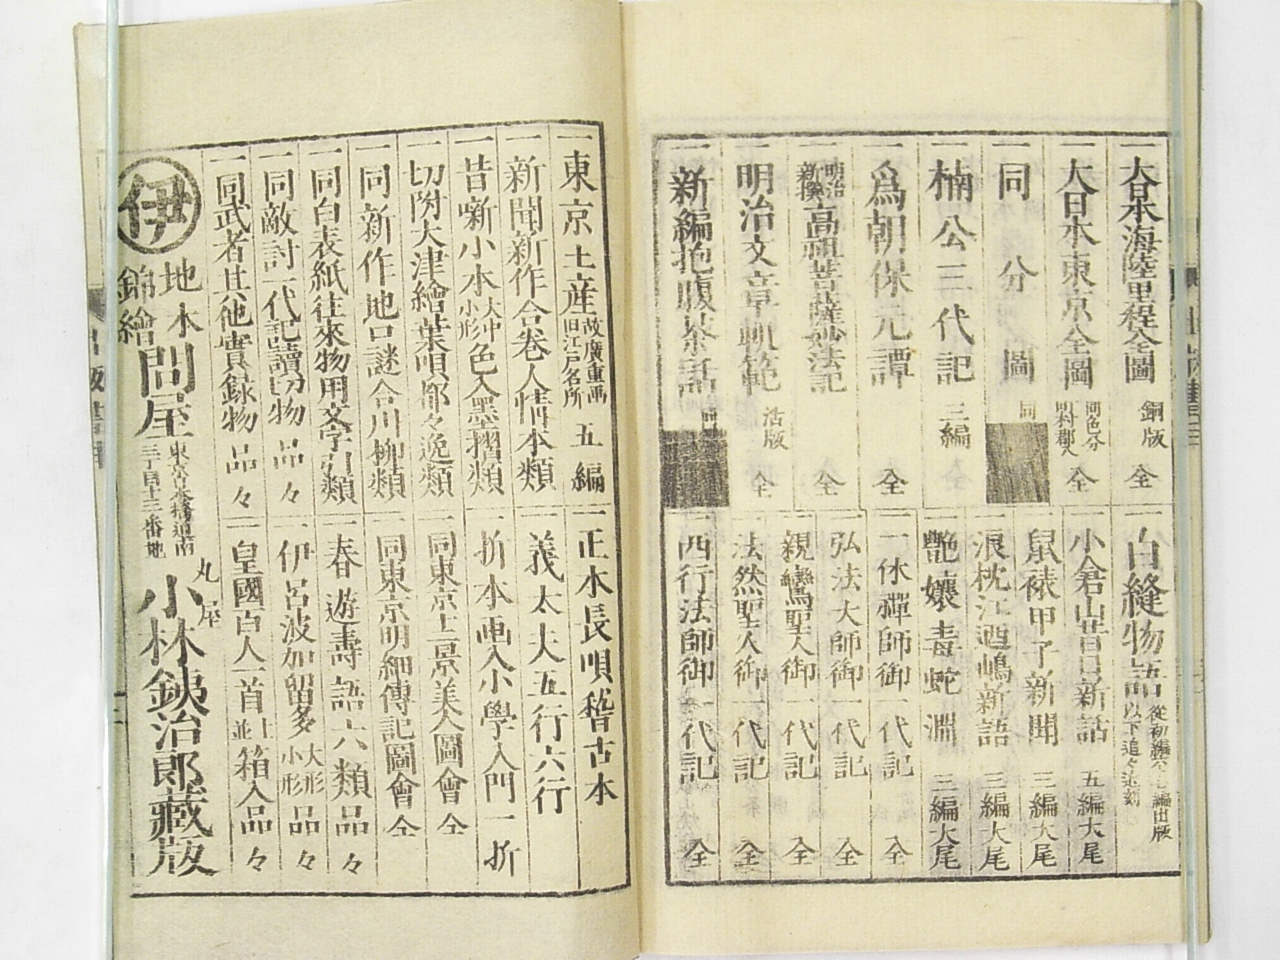 一大日本海陸里程全圖 銅版 全
一大日本東京全圖 同色分 町村郡入 全
一同 分 圖 同
一楠公三代記 三編 全
一爲朝保元譚 全
一明治新撰高祖菩薩妙法記 全
一明治文章軌範 活版 全
一新編抱腹茶話 同
一白縫物語 從初編 編出版 以下追々追刻
一小倉山昔日新話 五編大尾
一鼠裱甲子新聞 三編大尾
一浪枕江洒嶋新語 三編大尾
一艶孃毒蛇淵 三編大尾
一一休禪師御一代記 全
一弘法大師御一代記 全
一親鸞聖人御一代記 全
一法然聖人御一代記 全
一西行法師御一代記 全
一東京土産 故廣重画 旧江戸名所 五編
一新聞新作合巻人情本類
一昔噺小本 大中小形 色入墨摺類
一切附大津繪葉唄都々逸類
一同新作地口謎合川柳類
一同白表紙往來物用文字引類
一同敵討一代記讀切物 品々
一同武者其他實録物 品々
一正本長唄稽古本
一義太夫五行六行
一折本画入小學入門一折
一同東京土景美人圖會 全
一同東京明細傳記圖會 全
一春遊壽語六類品々
一伊呂波加留多 大形 小形 品々
一皇國百人一首 上並 箱入品々
伊
地本 錦繪 問屋
東京京橋區南 三丁目十三番地
丸屋 小林銕治郎藏版